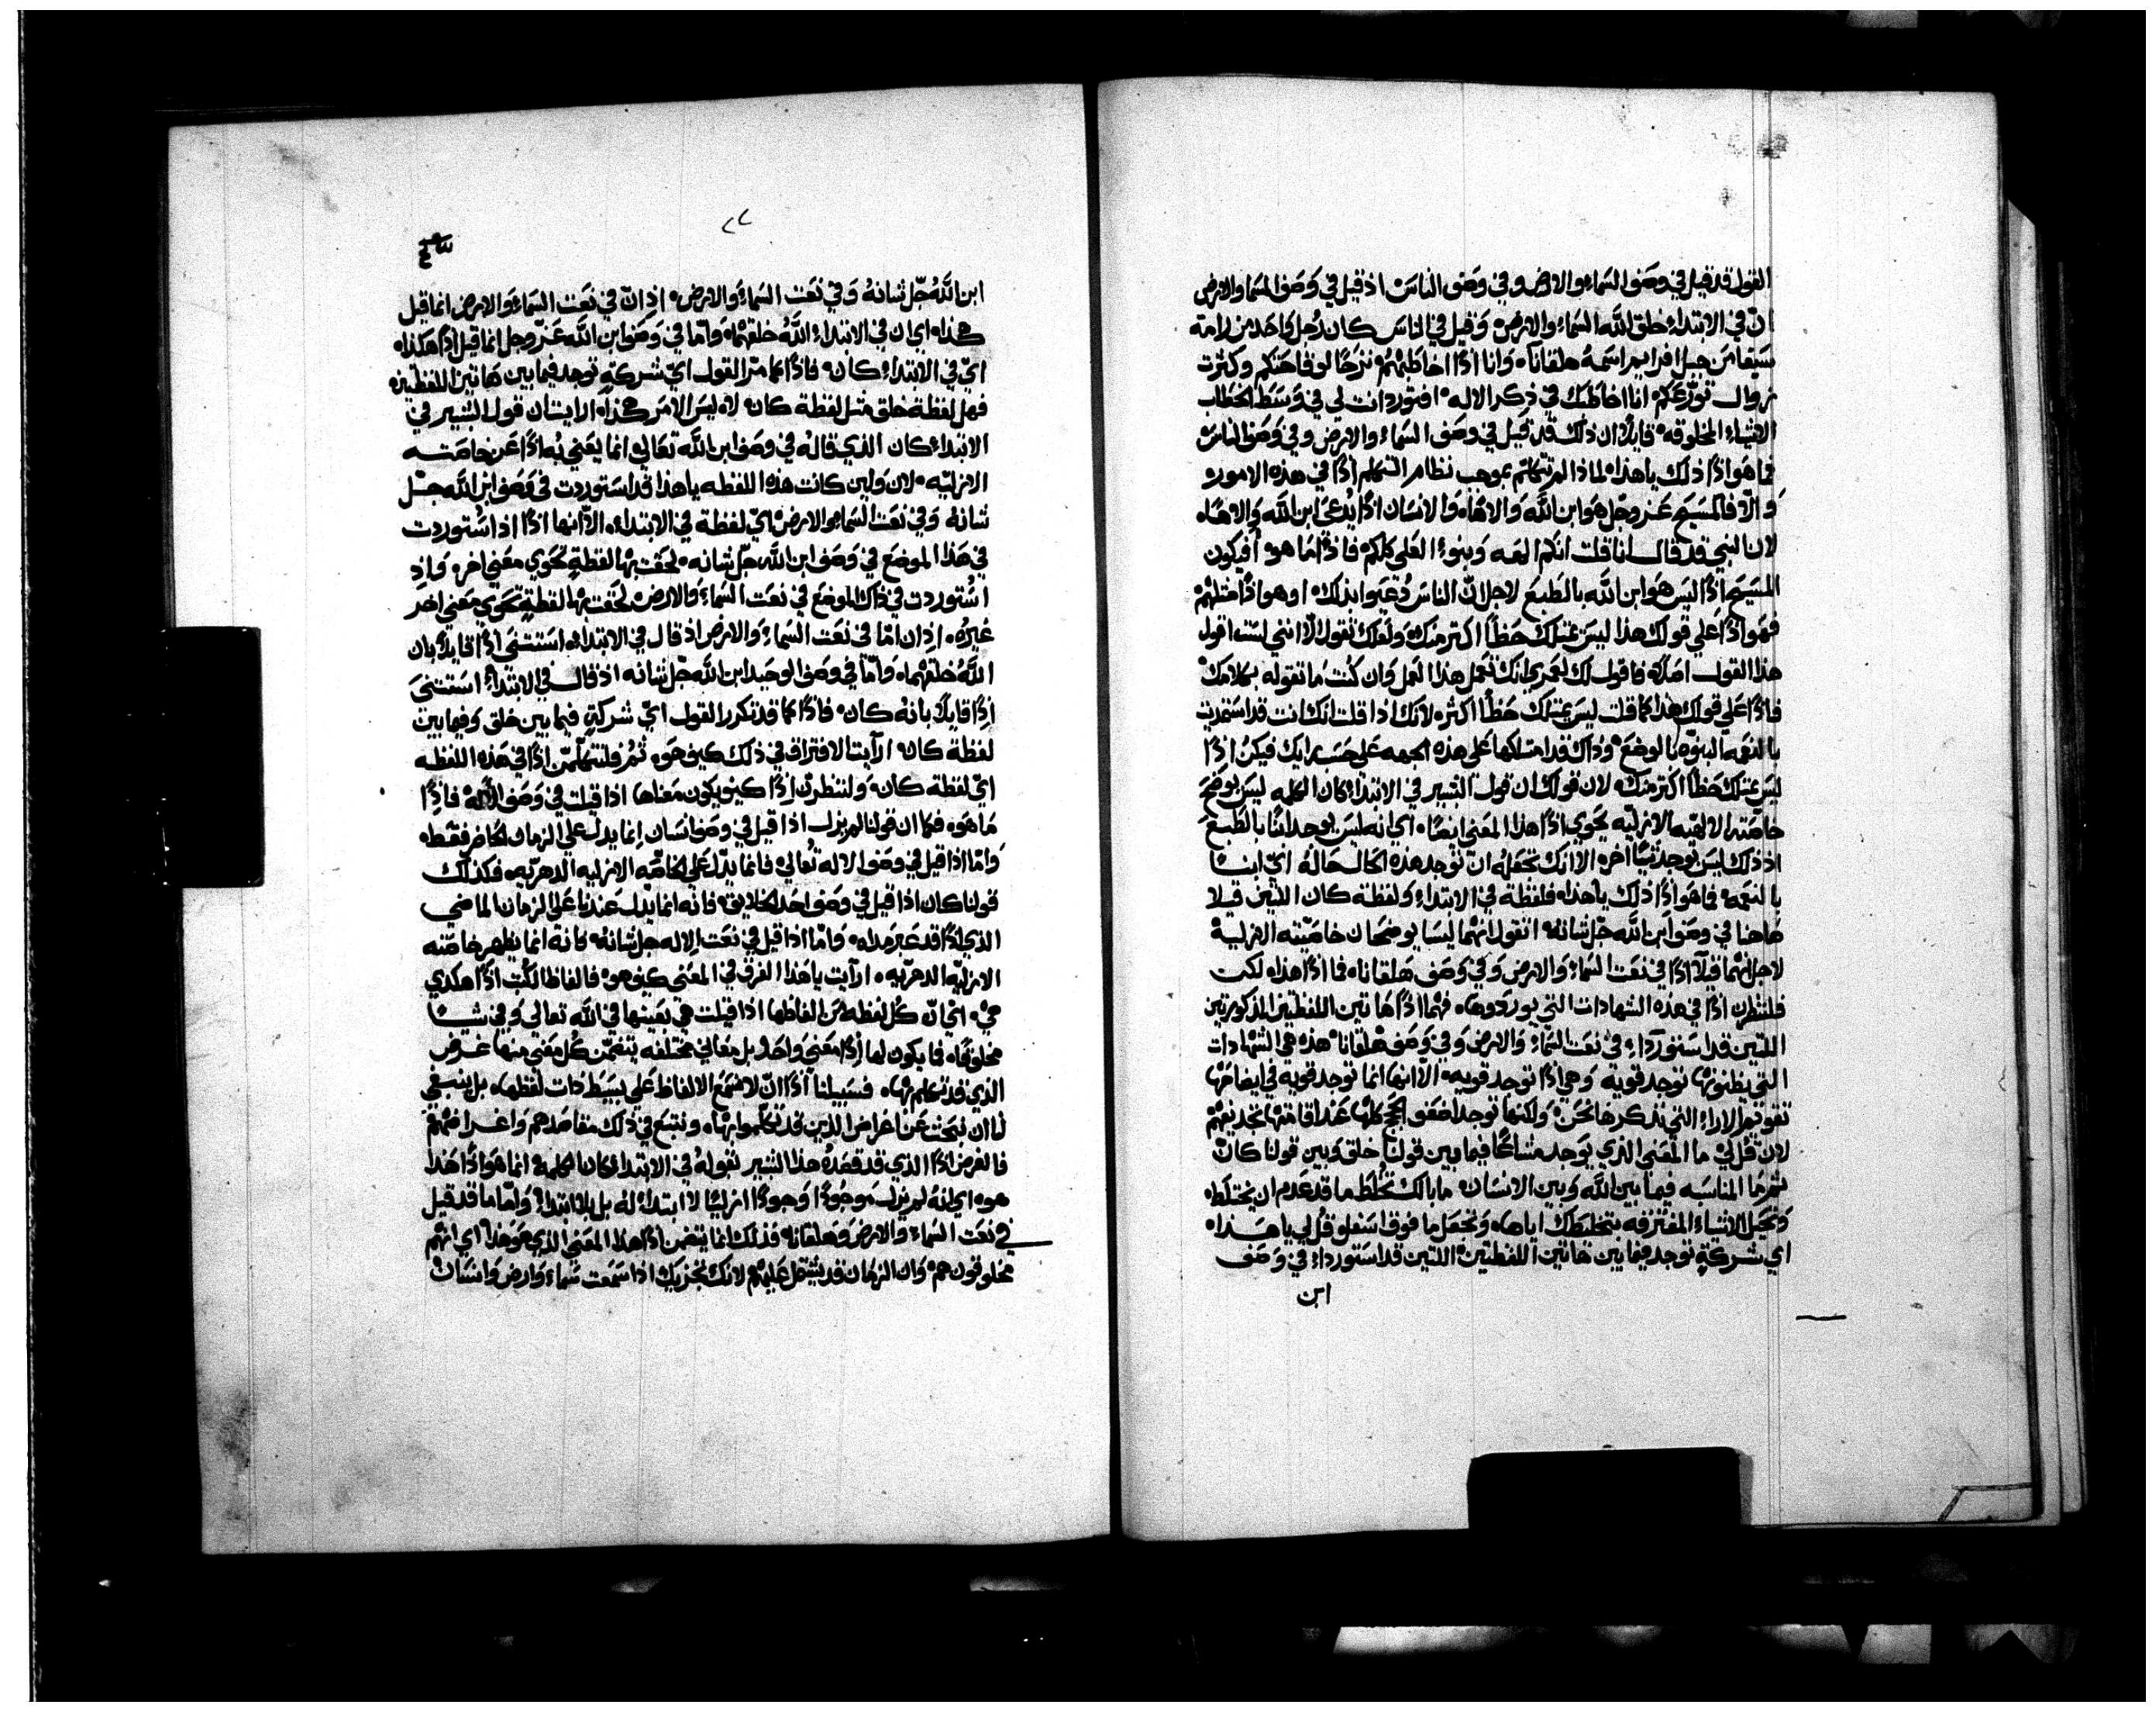 القول قد قيل في وصف السماء والارض وفي وصف الناس اذ قيل في وصف السما والارض
ان في الابتداء خلق الله السماء والارض وقيل في الناس كان رجل واحد من رامة
سيفا من جبل افرايم اسمه هلقانا وانا اذًا اخاطبهم نزحًا لوقاحتكم وكثرت
زوال تورعكم انا اخاطبك في ذكر الاله افتوردات لي في وسط الخطاب
الاشياء المخلوقه قايلا ان ذلك قد قيل في وصف السماء والارض وفي وصف الناس
فما هو اذًا ذلك يا هذا لماذا لم تتكلم بموجب نظام التكلم اذًا في هذه الامور
والا فالمسيح عز وجل هو ابن الله والاها والانسان اذًا يدعى ابن الله والاها
لان النبي قد قال انا قلت انكم الهه وبنوا العلي كلكم فاذًا ما هو افيكون
المسيح اذًا ليس هو ابن الله بالطبع لاجل ان الناس دعيوا بذلك او هو اذًا مثلهم
فهو اذًا علي قولك هذا ليس يمتلك حظًا اكتر منك ولعلك تقول لا انني لست اقول
هذا القول اصلا فاقول لك لعمري انك تعمل هذا العمل وان كنت ما تقوله بكلامك
فاذًا علي قولك هذا كما قلت ليس يمتلك حظًا اكثر لانك اذا قلت انك انت قد استمديت
بالنعمه البنوه بالوضع وذاك قد امتلكها علي هذه الجهه علي حسب رايك فيكن اذًا
ليس يمتلك حظًا اكتر منك لان قولك ان قول البشير في الابتداء كان الكلمه ليس يوضح
خاصته الالهيه الازليه يحوي اذًا هذا المعني ايضًا اي انه ليس يوجد ابنًا بالطبع
اذ ذلك ليس يوجد شيًا اخر الا انك تجعله ان توجد هذه الحال حاله اي ابنًا
بالنعمه فما هو اذًا ذلك يا هذا فلفظة في الابتداء ولفظة كان اللتين قيلا
هاهنا في وصف ابن الله جل شانه اتقول انهما ليسا يوضحان خاصيته الازلية
لاجل انهما قيلا اذًا في نعت السماء والارض وفي وصف هلقانا فما اذًا هذا لكن
فلننظرن اذًا في هذه الشهادات التي يوردوها فهما اذًا هاتين اللفظتين المذكورتين
اللتين قد استوردا في نعت السماء والارض وفي وصف هلقانا هذه هي الشهادات
التي يظنونها توجد قوية وهي اذًا توجد قويه الا انها انما توجد قويه في ايضاحها
تقوتم الاراء التي نذكرها نحن ولكنها توجد اضعف الحجج كلها عند اقامتها تجديفهم
لان قل لي ما المعني الذي يوجد مشاعًا فيما بين قولنا خلق وبين قولنا كان
ثم ما المناسبه فيما بين الله وبين الانسان ما بالك تخلط ما قد عدم ان يختلط
وتحيل الاشياء المفترقه بتخليطك اياها وتجعل ما فوق اسفل وقل لي يا هذا
اي شركة توجد فيما بين هاتين اللفظتين اللتين قد استوردا في وصف
ابن
٢٢
ابن الله جل شانه وفي نعت السماء والارض اذ ان في نعت السماء والارض انما قيل
هكذا اي ان في الابتداء الله خلقهما واما في وصف ابن الله عز وجل انما قيل اذًا هكذا
اي في الابتداء كان فاذًا كما مر القول اي شركة توجد فيما بين هاتين اللفظتين
فهل لفظة خلق مثل لفظة كان لا ليس الامر هكذا الا رايت ان قول البشير في
الابتداء كان الذي قاله في وصف ابن الله تعالي انما يعني به اذًا عن خاصته
الازليه لان ولين كانت هذه اللفظه يا هذا قد استوردت في وصف ابن الله جل
شانه وفي نعت السماء والارض اي لفظة في الابتداء الا انها اذًا اذا استوردت
في هذا الموضع في وصف ابن الله جل شانه لحقت بها لفظة تحوي معني اخر واذ
استوردت في ذاك الموضع في نعت السماء والارض لحقت بها لفظة تحوي معني اخر
غيره اذ ان اما في نعت السماء والارض اذ قال في الابتداء استثني اذًا قايلا بان
الله خلقهما واما في وصف الوحيد ابن الله جل شانه اذ قال في الابتداء استثني
اذًا قايلا بانه كان فاذًا كما قد تكرر القول اي شركة فيما بين خلق وفيما بين
لفظة كان ارآيت الافتراق في ذلك كيف هو ثم فلنتهلمن اذًا في هذه اللفظه
اي لفظة كان ولننظرن اذًا كيف يكون معناها اذا قيلت في وصف الاله فاذًا
ما هو فكما ان قولنا لم يزل اذا قيل في وصف انسان انما يدل علي الزمان الحاضر فقط
واما اذا قيل في وصف الاله تعالي فانما يدل علي الخاصه الازليه الدهريه فكذلك
قولنا كان اذا قيل في وصف احد الخلايق فانه انما يدل عندنا علي الزمان الماضي
الذي اذًا قد عبر مداه واما اذا قيل في نعت الاله جل شانه فانه انما يظهر خاصته
الازليه الدهريه ارآيت يا هذا الفرق في المعني كيف هو فالفاظ الكتب اذًا هكذي
هي اي ان كل لفظه من الفاظها اذا قيلت هي بعينها في الله تعالي وفي شيًا
مخلوقًا فما يكون لها اذًا معني واحد بل معاني مختلفه يتضمن كل معني منها غرض
الذي قد تكلم بها فسبيلنا اذًا ان لا نسمع الالفاظ علي بسيط ذات لفظها بل ينبغي
لنا ان نبحث عن اغراض الذين قد تكلموا بها ونتبع في ذلك مقاصدهم واغراضهم
فالغرض اذًا الذي قد قصده هذا البشير بقوله في الابتداء كان الكلمه انما هو اذًا هذا
هو اي انه لم يزل موجودًا وجودًا ازليًا لا ابتداء له بل بلا ابتداء واما ما قد قيل
في نعت السماء والارض وهلقانا فذلك انما يتضمن اذًا هذا المعني الذي هو هذا اي انهم
مخلوقون هم وان الزمان قد يشتمل عليهم لانك تجزيك اذا سمعت سماء وارض وانسان